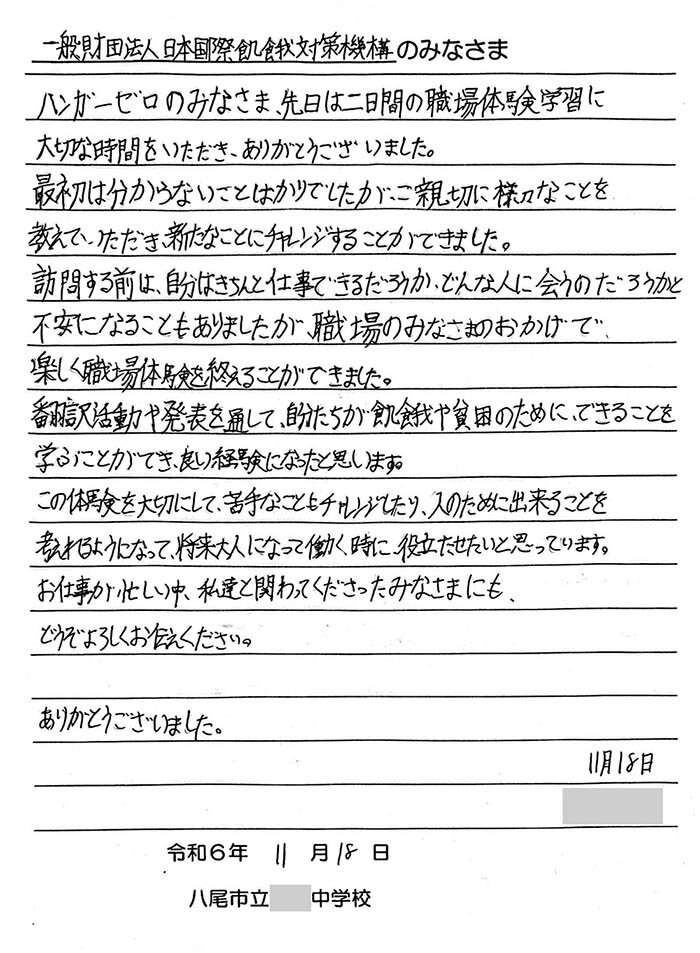 一般財団法人日本国際飢餓対策機構のみなさま
ハンガーゼロのみなさま、先日は二日間の職場体験学習に
大切な時間をいただき、ありがとうございました。
最初は分からないことばかりでしたが、ご親切に様々なことを
教えていただき、新たなことにチャレンジすることができました。
訪問する前は、自分はきちんと仕事できるだろうか、どんな人に会うのだろうかと
不安になることもありましたが、職場のみなさまのおかげで、
楽しく職場体験を終えることができました。
翻訳活動や発表を通して、自分たちが飢餓や貧困のために、できることを
学ぶことができ、良い経験になったと思います。
この体験を大切にして、苦手なこともチャレンジしたり、人のために出来ることを
考えれるようになって、将来大人になって働く時に、役立たせたいと思っています。
お仕事が忙しい中、私達と関わってくださったみなさまにも、
どうぞよろしくお伝えください。
ありがとうございました。
11月18日
令和6年 11 月 18 日
八尾市立 中学校